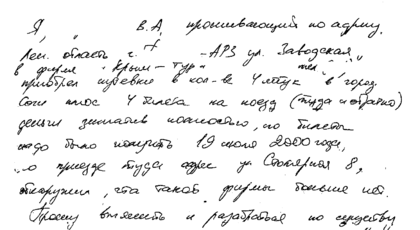 Я, " В.А, проживающий по адресу.
Лен. область г. Т -АРЗ ул. Заводская
в фирме "Крым-тур" тел " "
приобрел путевки в кол-ве 4 штук в город
Сочи плюс 4 билета на поезд (туда и обратно)
деньги заплатив полностью, но билеты
надо было получить 19 июля 2000 года,
по приезде туда адрес ул. Столярная 8,
обнаружили, что такой фирмы больше нет.
Прошу выяснить и разобраться по существу